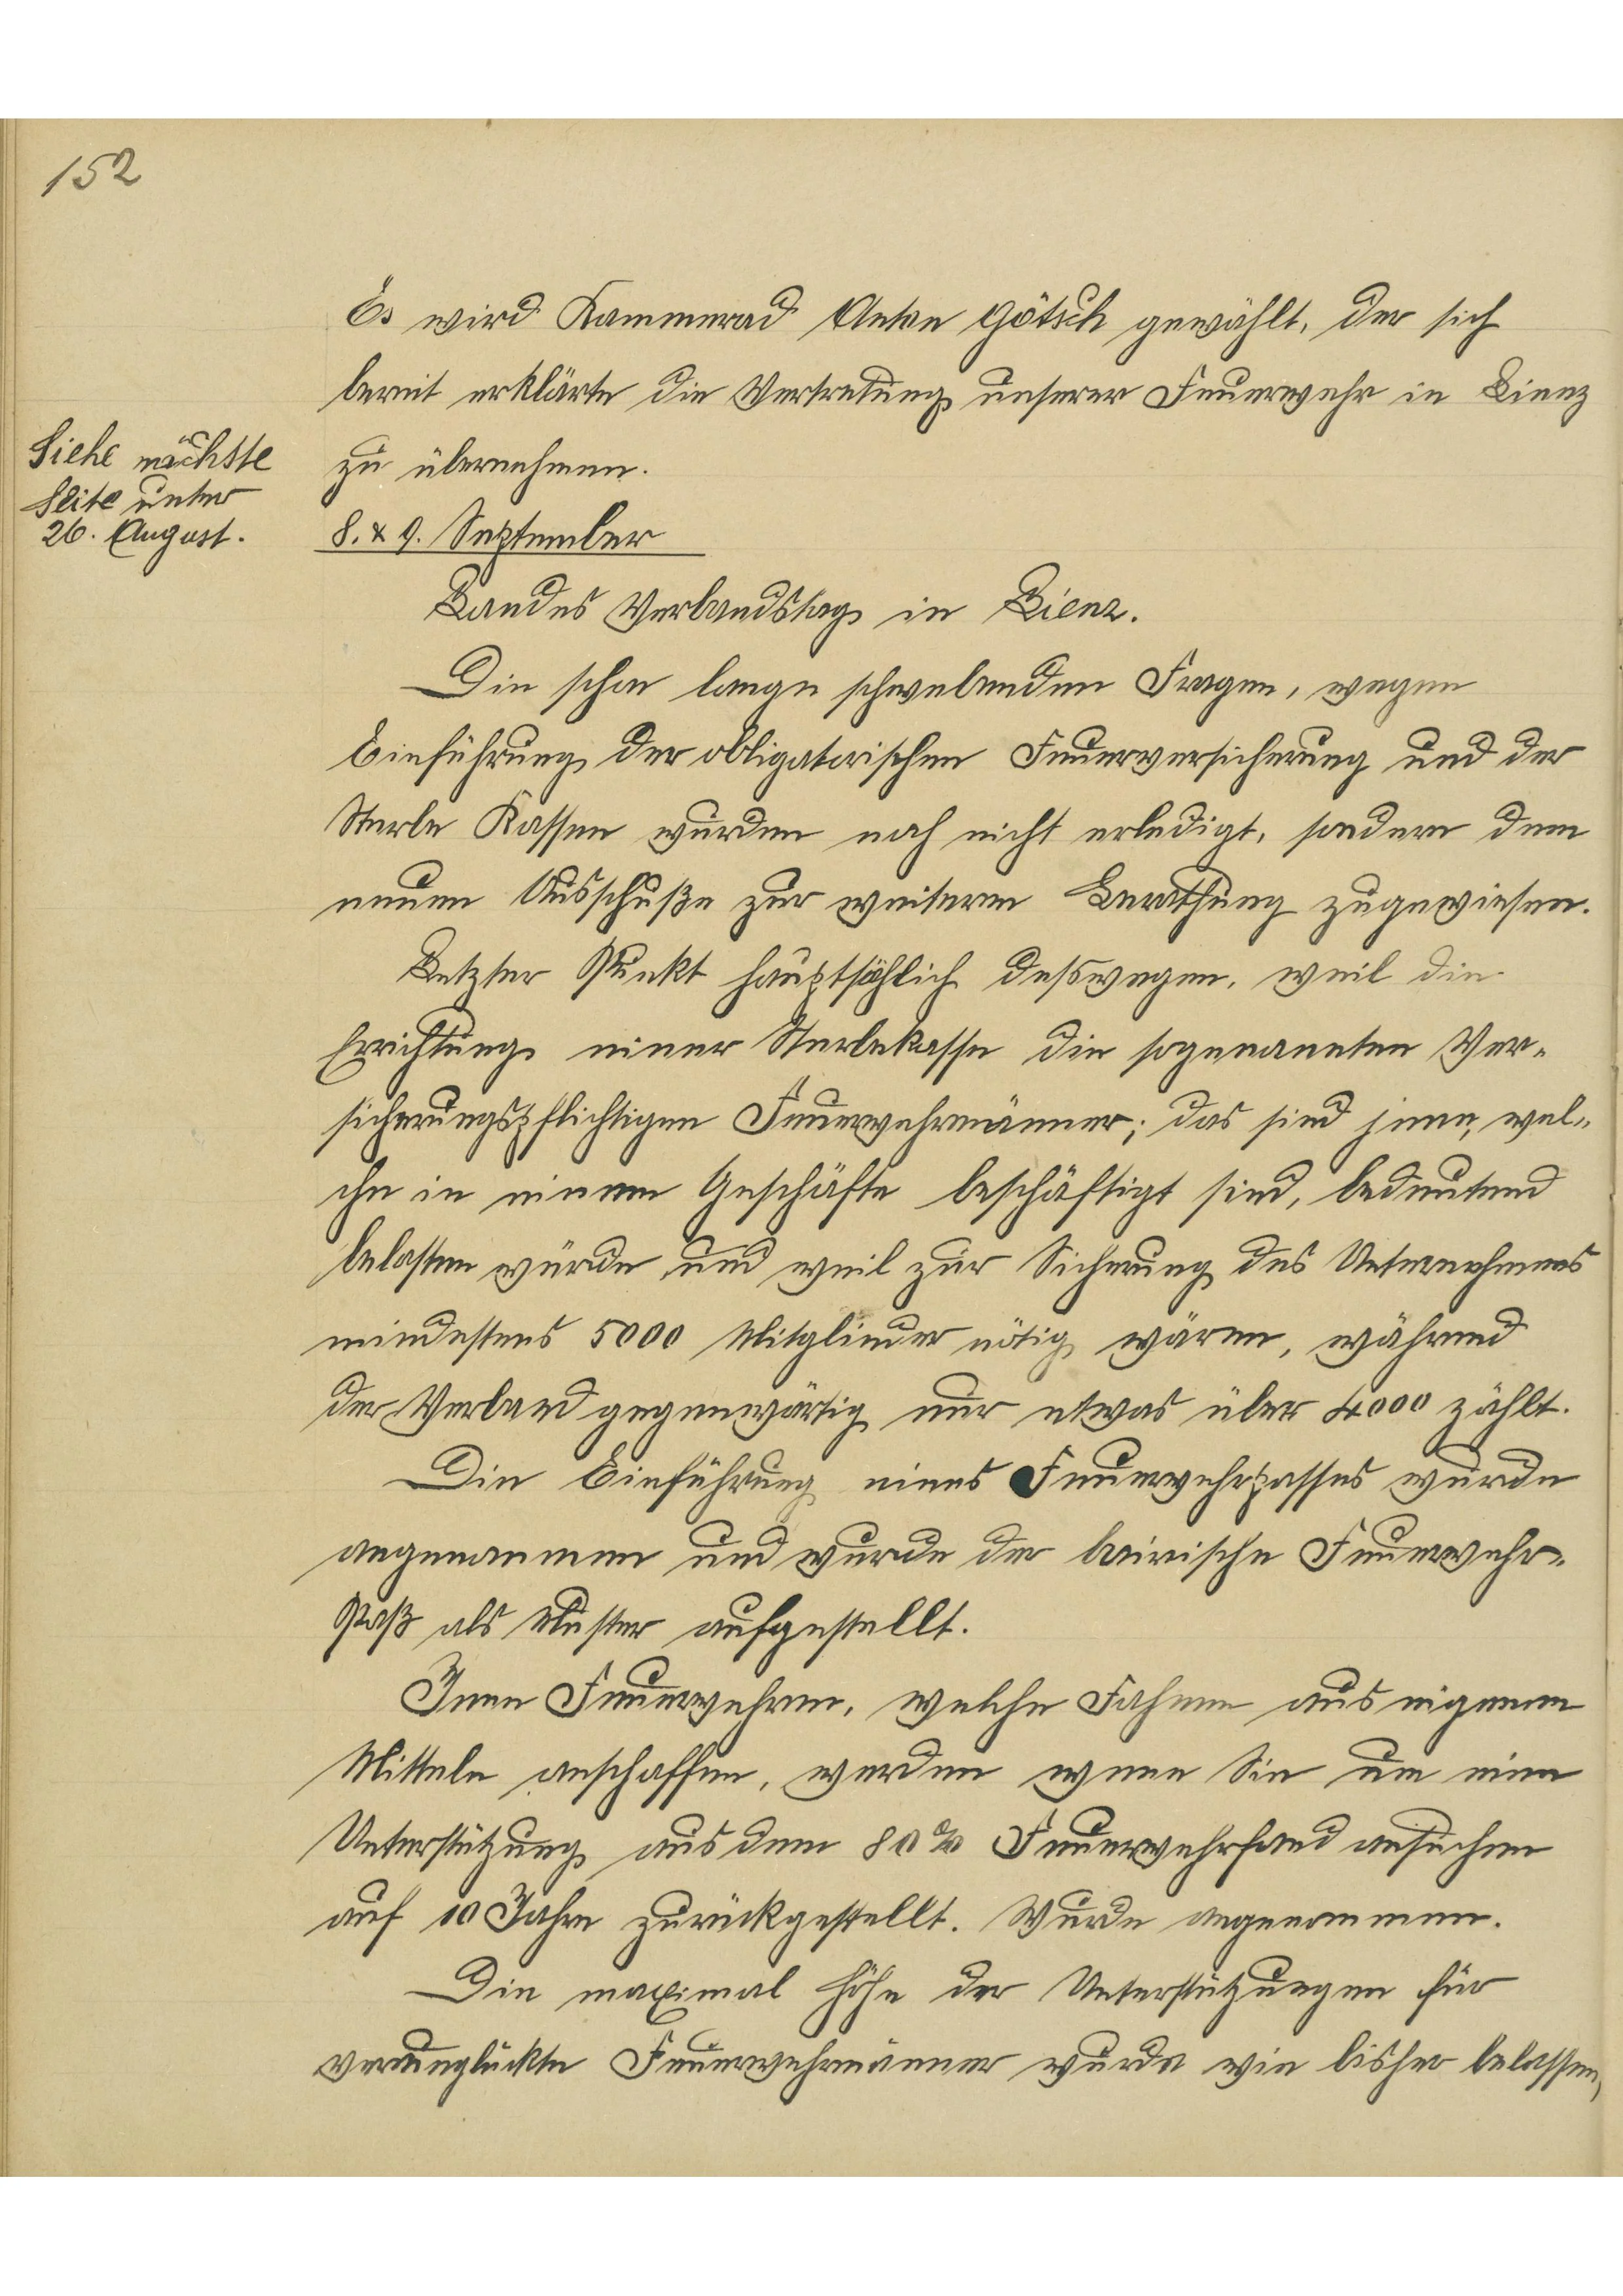 152
Es wird Kammerad Anton Götsch gewählt, der sich
bereit erklärte die Vertretung unserer Feuerwehr in Lienz
zu übernehmen.
Siehe nächste
Seite unter
26. August.
8. & 9. September
Landes Verbandstag in Lienz.
Die schon lange schwebenden Fragen, wegen
Einführung der obligatorischen Feuerversicherung und der
Sterbe Kassen wurden noch nicht erledigt, sondern dem
neuen Ausschuße zur weiteren Berathung zugewiesen.
Letzter Punkt hauptsächlich deswegen, weil die
Errichtung einer Sterbekasse die sogenannten Ver-
sicherungspflichtigen Feuerwehrmänner; das sind jene, wel-
che in einem Geschäfte beschäftigt sind, bedeutend
belasten würde und weil zur Sicherung des Unternehmens
mindestens 5000 Mitglieder nötig wären, während
der Verband gegenwärtig nur etwas über 4000 zählt.
Die Einführung eines Feuerwehrpasses wurde
angenommen und wurde der bairische Feuerwehr-
Paß als Muster aufgestellt.
Jene Feuerwehren, welche Fahnen aus eigenen
Mitteln anschaffen, werden wenn Sie um eine
Unterstützung aus dem 80% Feuerwehrfond ansuchen
auf 10 Jahre zurückgestellt. Wurde angenommen.
Die maximal Höhe der Unterstützungen für
verunglückte Feuerwehrmänner wurde wie bisher belassen,